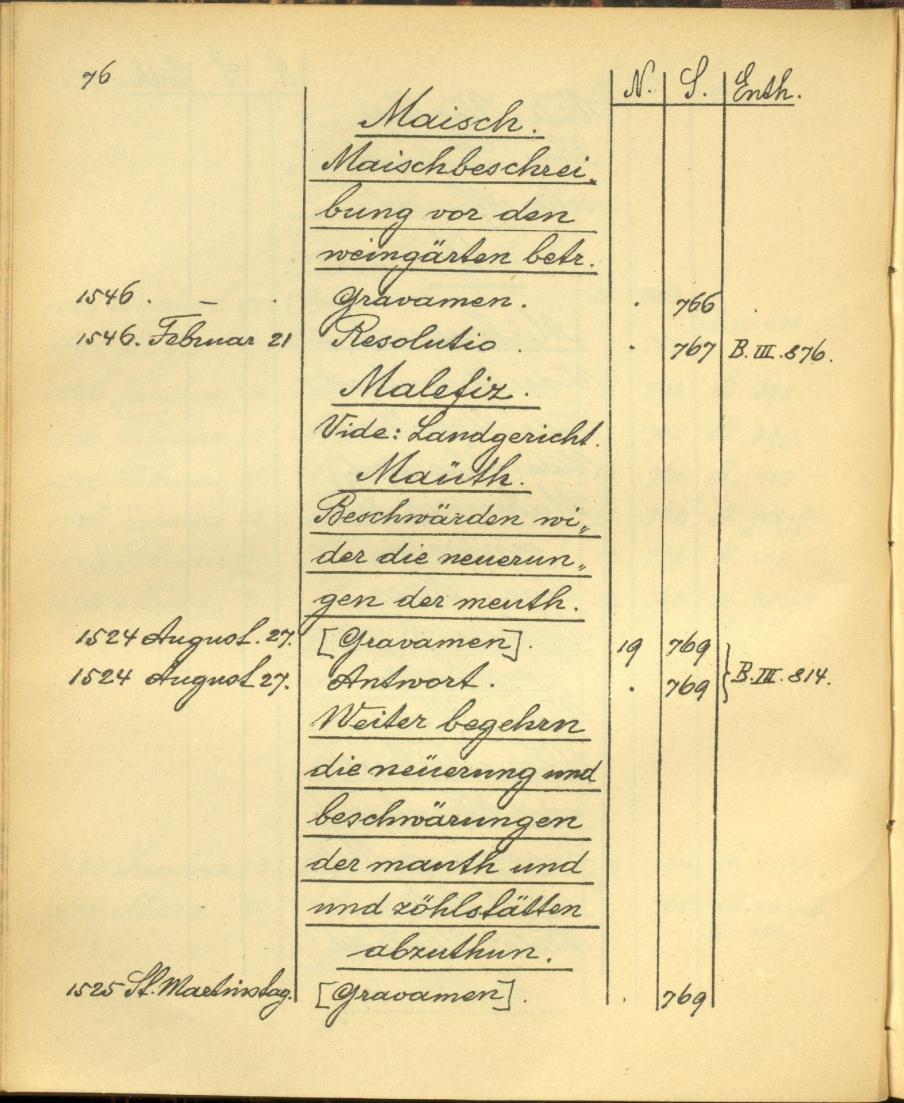 76 N. S. Enth.
Maisch.
Maischbeschrei„
bung vor den
weingärten betr.
1546. — . Gravamen. . 766
1546. Februar 21 Resolutio . . 767 B. III. 876.
Malefiz.
Vide: Landgericht.
Maüth.
Beschwärden wi„
der die neuerun„
gen der meuth.
1524 August. 27. [Gravamen]. 19 769
1524 August 27. Antwort. . 769 } B. III. 814.
Weiter begehrn
die neüerung und
beschwärungen
der mauth und
und zöhlstätten
abzuthun.
1525 St. Martinstag. [Gravamen]. . 769